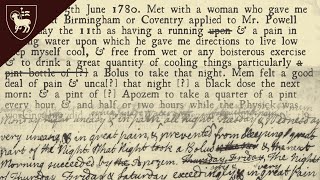 th June 1780. Met with a woman who gave me
Birmingham or Coventry applied to Mr. Powell
day the 11th as having a running upon & a pain in
ng water upon which he gave me directions to live low
eep myself cool, & free from wet or any boisterous exercise
& to drink a great quantity of cooling things particularly a
pint bottle of [?] a Bolus to take that night. Mem felt a good
deal of pain & uncal?] that night [?] a black dose the next
morn: & a pint of [?] Apozem to take a quarter of a pint
every hour & and half or two hours while the Physick was
all Night
very in great pain, & prevented from sleeping great
part of the Night. That Night took a Bolus & the next
Morning succeeded by the Apozem. Thursday, Friday, The Night
of Thursday Friday & Saturday exceedingly in great pain